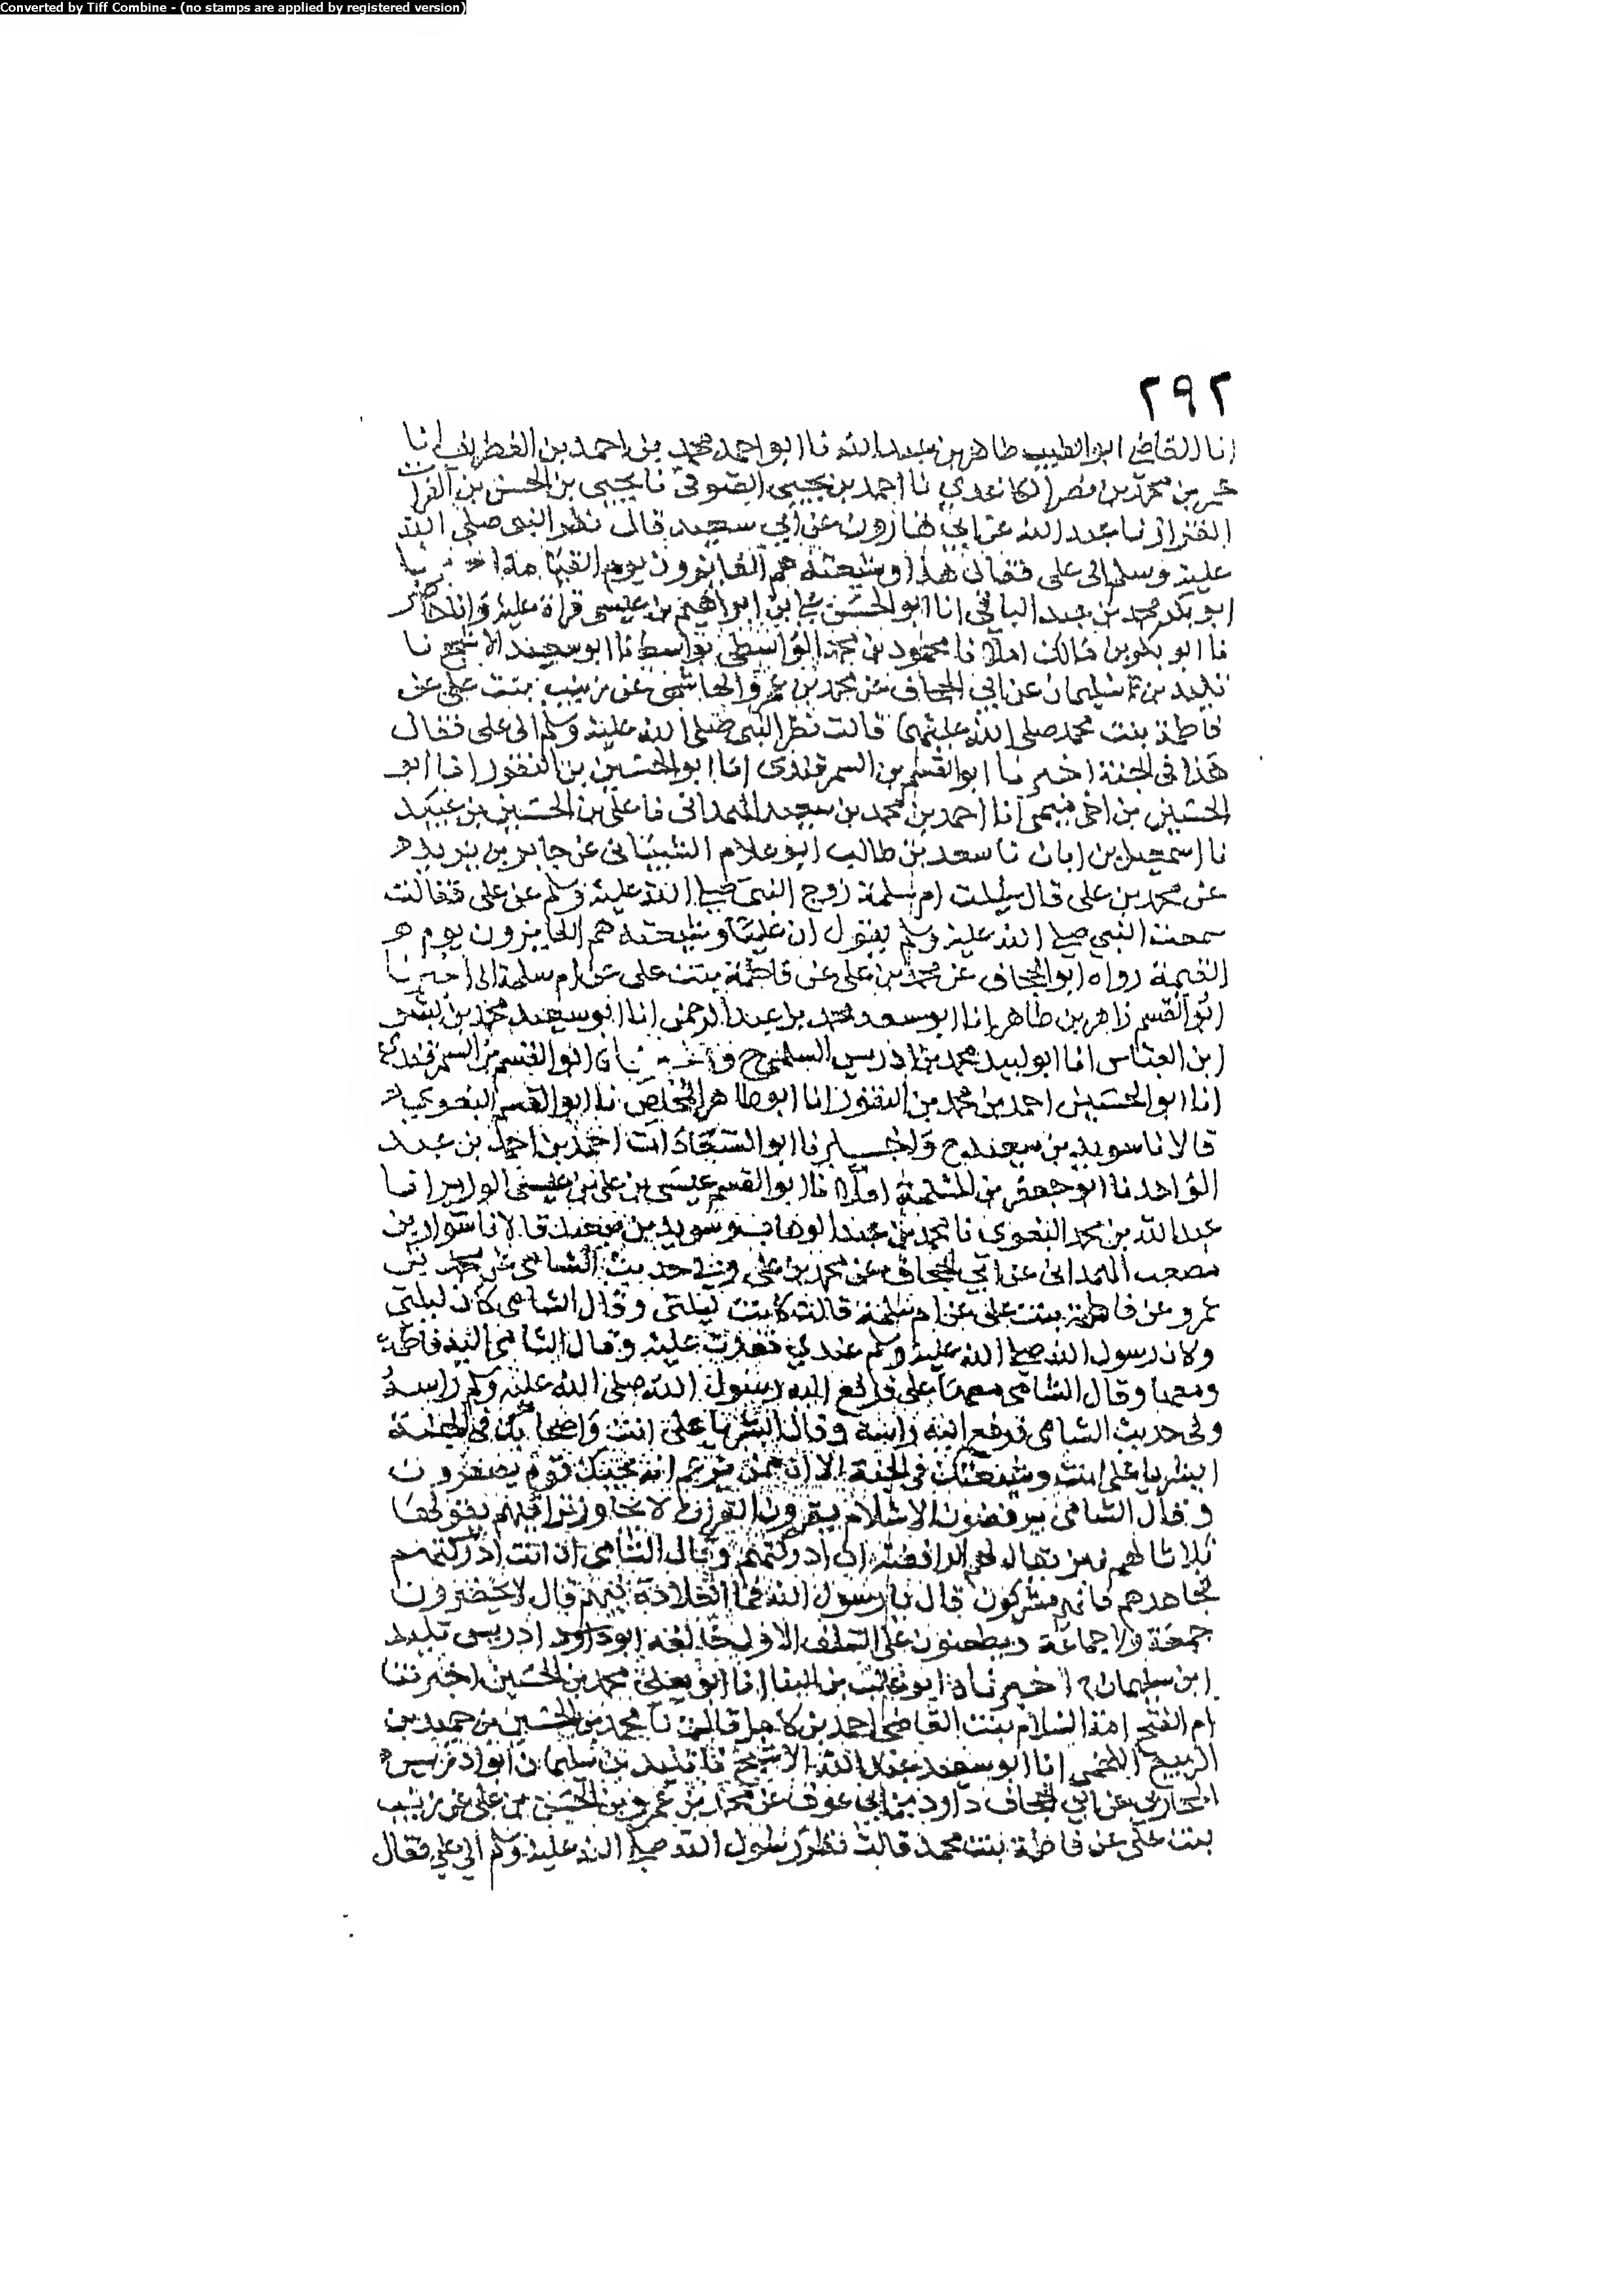 Converted by Tiff Combine - (no stamps are applied by registered version)
٢٩٢
انا القاضي ابو الطيب طاهر بن عبد الله نا ابو احمد محمد بن احمد بن الغطريف انا
بن محمد بن نصر الكاغدي نا احمد بن يحيى الصوفي نا يحيى بن الحسن بن الفرات
القزاز نا عبد الله عن ابي هارون عن ابي سعيد قال نظر النبي صلى الله
عليه وسلم الى علي فقال هذا وشيعته هم الفائزون يوم القيامة اخبرنا
ابو بكر محمد بن عبد الباقي انا ابو الحسن علي بن ابراهيم بن عيسى قراة عليه وانا حاضر
نا ابو بكر بن مالك املا نا محمود بن محمد الواسطي بواسط نا ابو سعيد الاشج نا
تليد بن سليمان عن ابي الجحاف عن محمد بن عمرو الهاشمي عن زينب بنت علي عن
فاطمة بنت محمد صلى الله عليهما قالت نظر النبي صلى الله عليه وسلم الى علي فقال
هذا في الجنة اخبرنا ابو القسم بن السمرقندي انا ابو الحسين بن النقور انا ابو
الحسين بن اخي ميمي انا احمد بن محمد بن سعيد الهمداني نا علي بن الحسين بن عبيد
نا اسمعيل بن ابان نا سعد بن طالب ابو علام الشيباني عن جابر بن يزيد
عن محمد بن علي قال سيلت ام سلمة زوج النبي صلى الله عليه وسلم عن علي فقالت
سمعت النبي صلى الله عليه وسلم يقول ان عليا وشيعته هم الفايزون يوم
القيمة رواه ابو الجحاف عن محمد بن علي عن فاطمة بنت علي عن ام سلمة اخبرنا
ابو القسم زاهر بن طاهر انا ابو سعد محمد بن عبد الرحمن انا ابو سعيد محمد بن بشر
ابن العباس انا ابو لبيد محمد بن ادريس السلمي ح واخبرنا ابو القسم بن السمرقندي
انا ابو الحسين احمد بن محمد بن النقور انا ابو طاهر المخلص نا ابو القسم البغوي
قالا نا سويد بن سعيد ح واخبرنا ابو السعادات احمد بن احمد بن عبد
الواحد نا ابو جعفر بن المسلمة املا نا ابو القسم عيسى بن علي بن عيسى الوزير انا
عبد الله بن محمد البغوي نا محمد بن عبد الوهاب وسويد بن سعيد قالا نا سوار بن
مصعب الهمداني عن ابي الجحاف عن محمد بن علي وفي حديث الشامي عن محمد بن
عمرو عن فاطمة بنت علي عن ام سلمة قالت كانت ليلتي وقال الشامي كان ليلتي
وكان رسول الله صلى الله عليه وسلم عندي فغدت عليه وقال الشامي اليه فاطمة
ومعها وقال الشامي معها علي فرفع اليه رسول الله صلى الله عليه وسلم راسه
وفي حديث الشامي فرفع اليه راسه وقال ابشر يا علي انت واصحابك في الجنة
ابشر يا علي انت وشيعتك في الجنة الا ان ممن يزعم انه يحبك قوم يصغرون
وقال الشامي يرفضون الاسلام يقرون القران لا يجاوز تراقيهم يقولها
ثلاثا لهم نبز يقال لهم الرافضة ان ادركتهم وقال الشامي ان انت ادركتهم
تجاهدهم فانهم مشركون قال يا رسول الله فما العلامة فيهم قال لا يحضرون
جمعة ولا جماعة ويطعنون على السلف الاول خالفه ابو ادريس تليد
ابن سليمان اخبرناه ابو غالب بن البنا انا ابو يعلى محمد بن الحسين اخبرتنا
ام الفتح امة السلام بنت القاضي احمد بن كامل قالت نا محمد بن الحسين بن حميد بن
الربيع اللخمي انا ابو سعيد عبد الله الاشج نا تليد بن سليمان ابو ادريس
المحاربي عن ابي الجحاف داود بن ابي عوف عن محمد بن عمرو بن الحسن بن علي عن زينب
بنت علي عن فاطمة بنت محمد قالت نظر رسول الله صلى الله عليه وسلم الى علي فقال